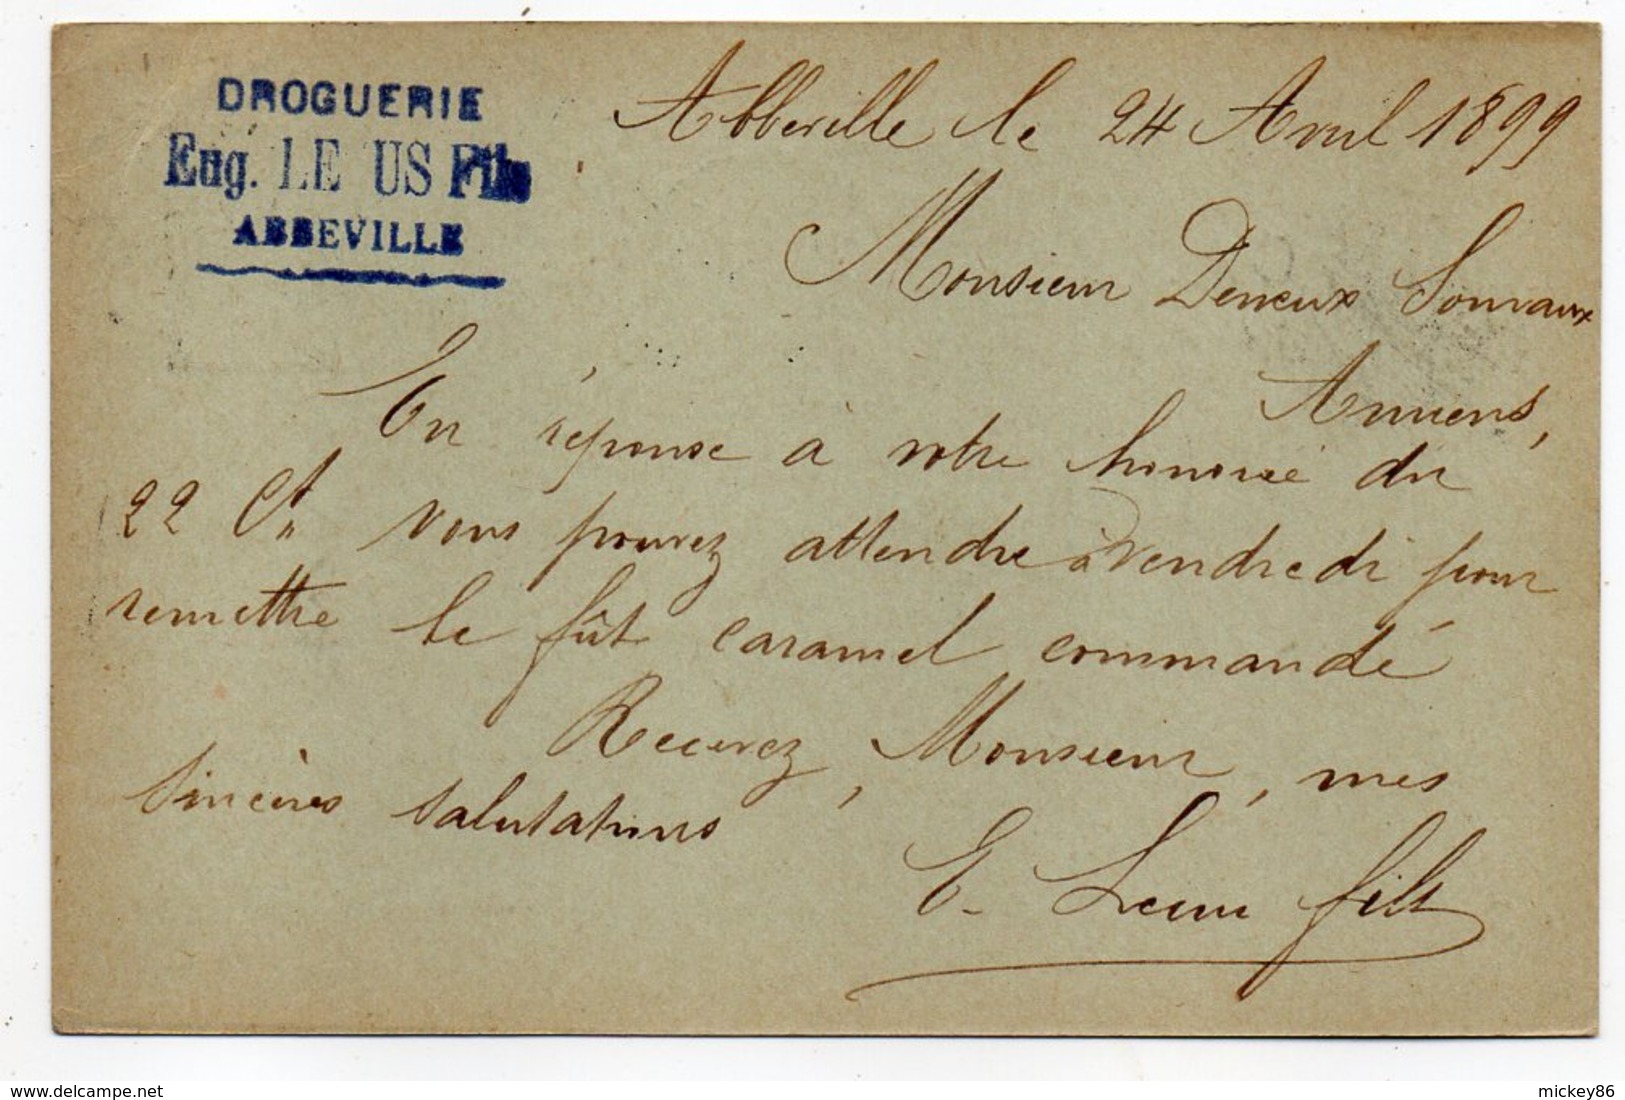 DROGUERIE
Eug. LE US Fils
ABBEVILLE
Abbeville le 24 Avril 1899
Monsieur Deneux
Amiens,
En réponse à votre honorée du
22 Ct vous pouvez attendre à vendredi pour
remettre le fût caramel commandé
Recevez, Monsieur, mes
sincères salutations
E. fils
delcampe.net
mickey86